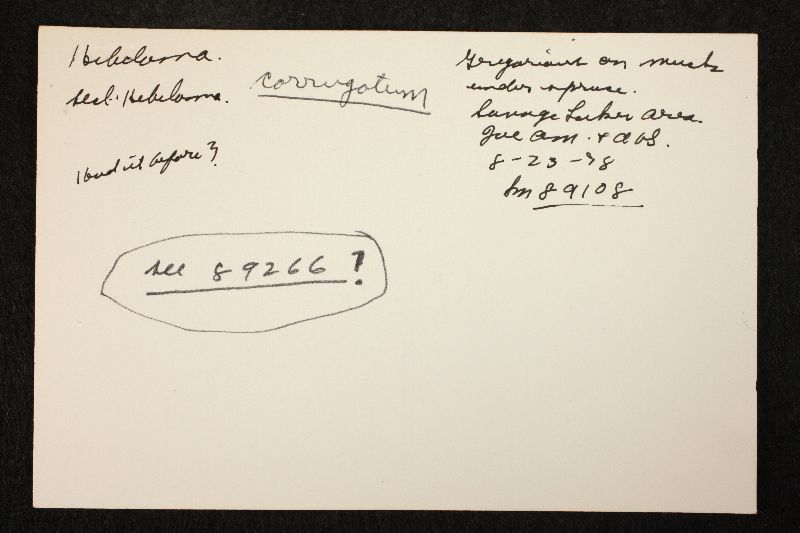 Hebeloma.
sect. Hebeloma.
corrugatum
Had it before?
see 89266!
Gregarious on muck
under spruce.
Savage Lakes area.
Joe Am. + AHS.
8-23-78
Sm 89108